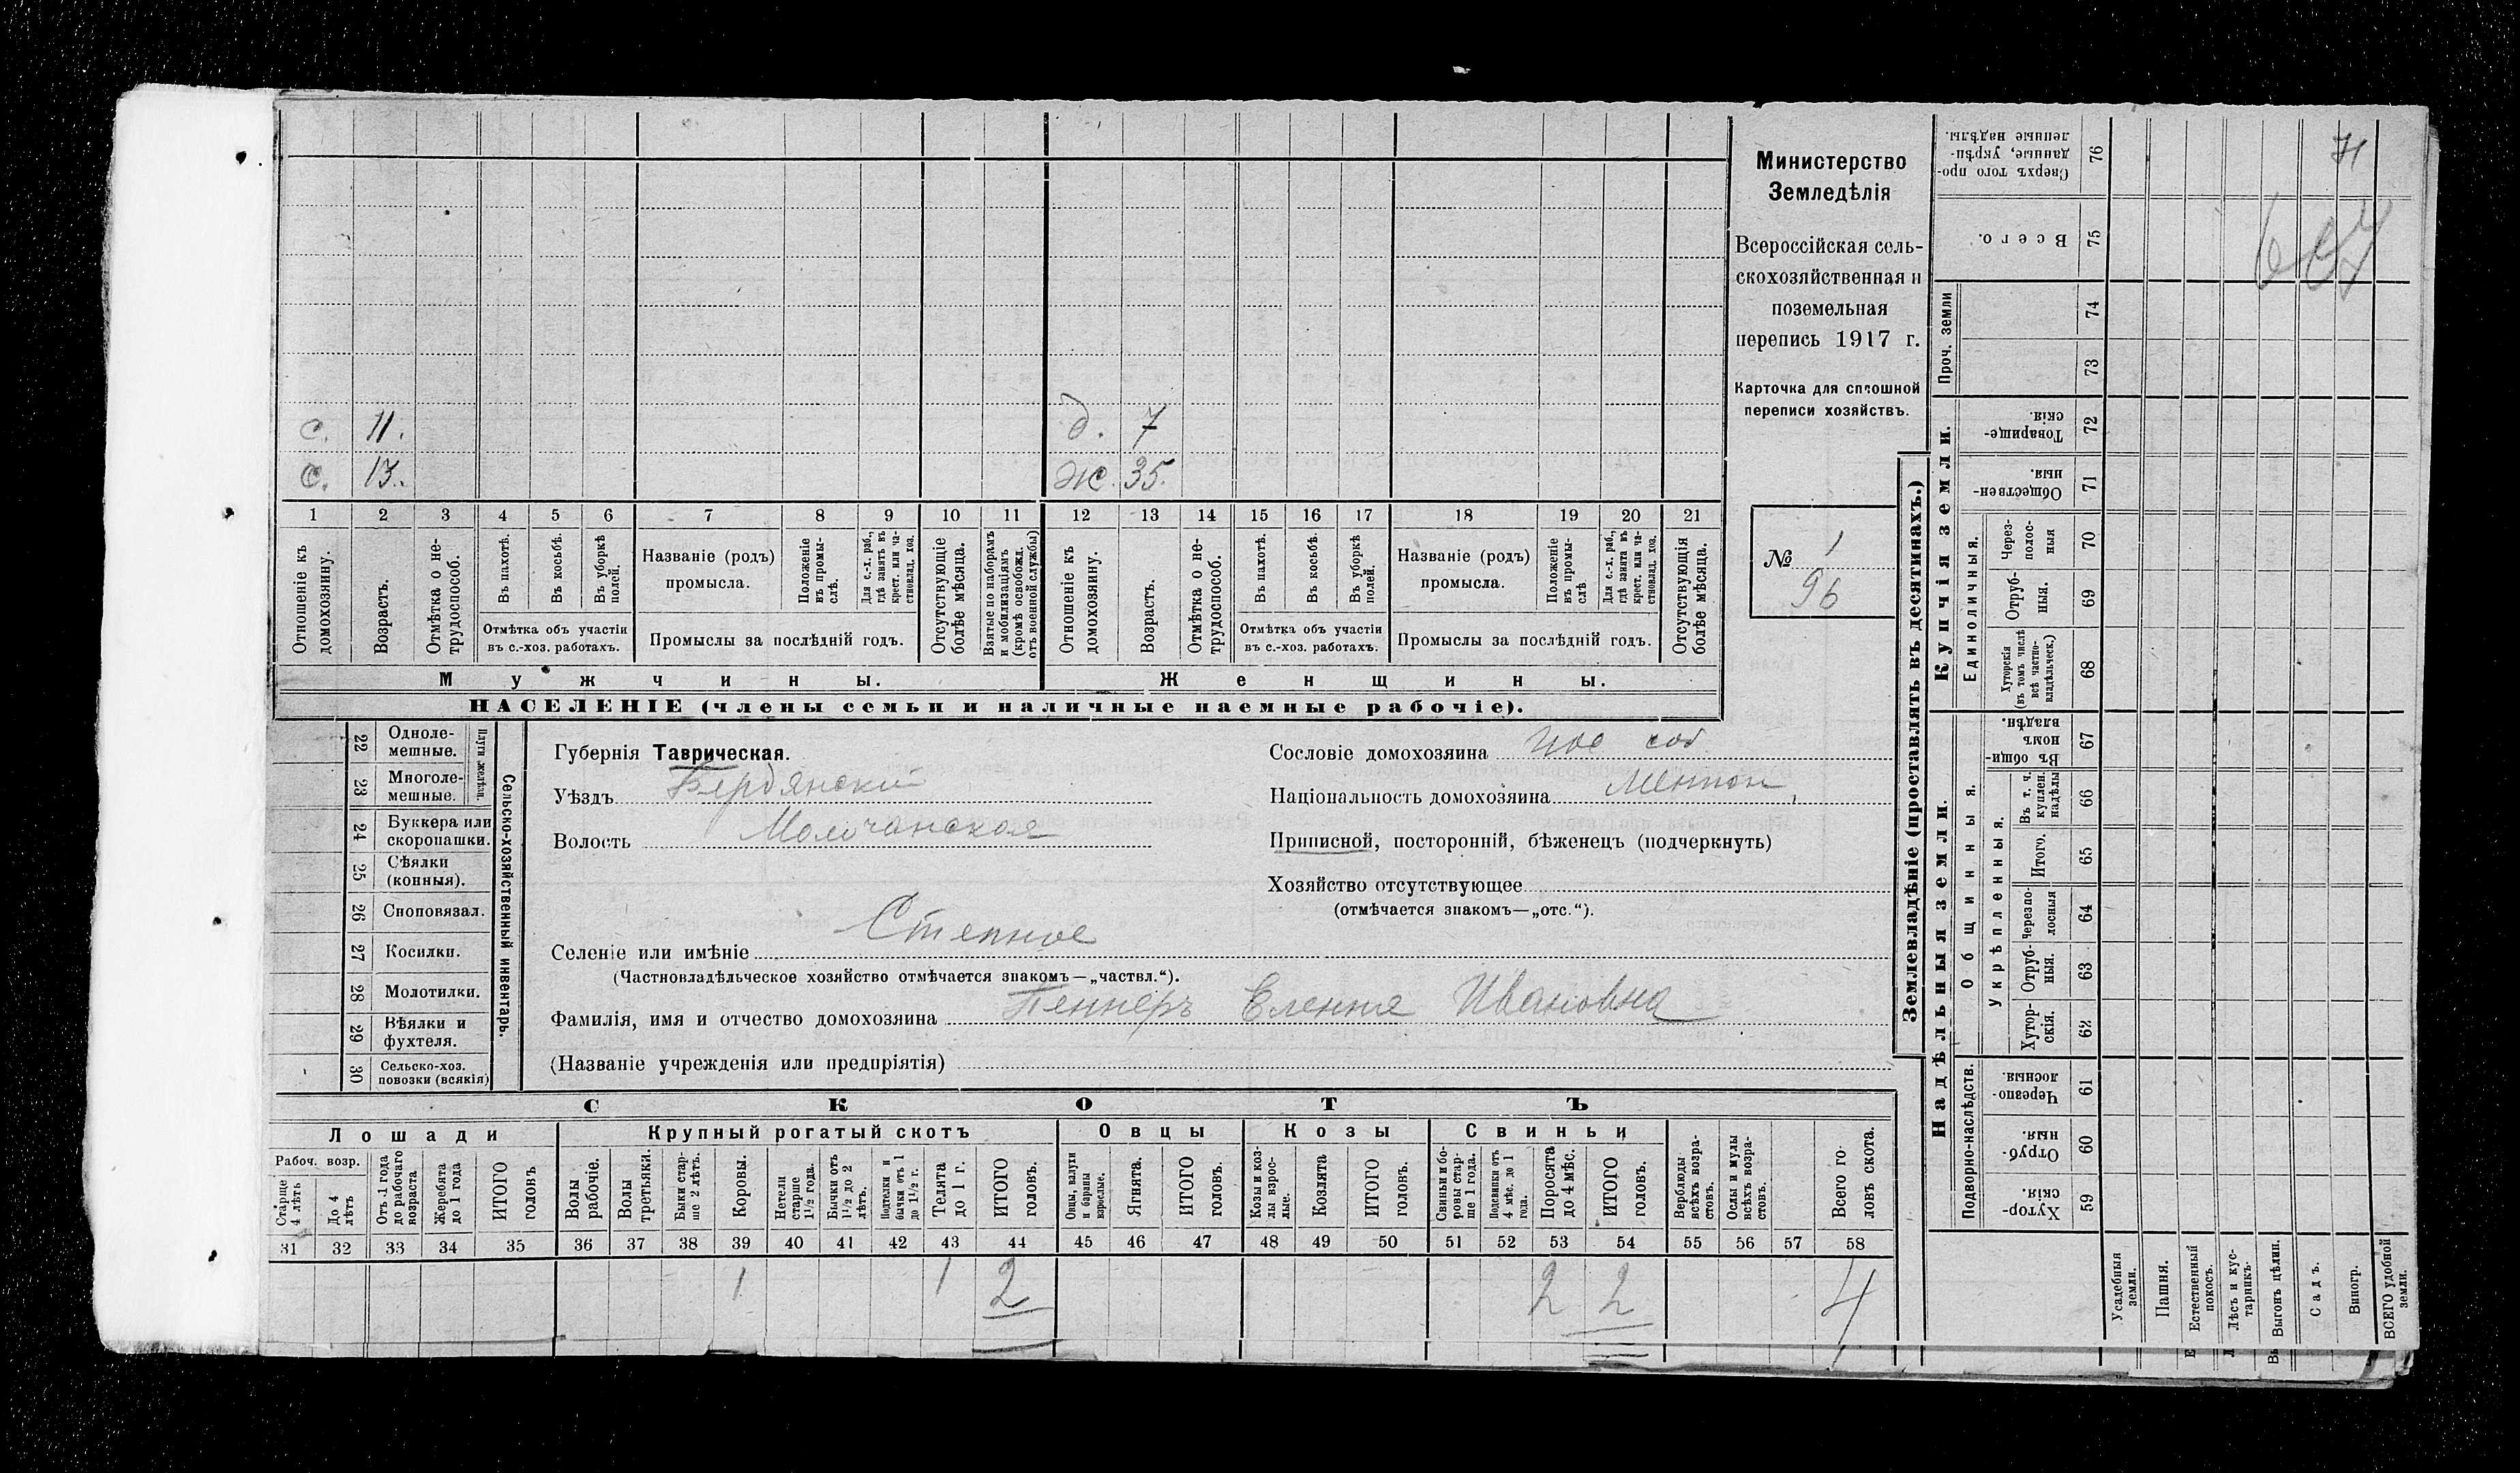 с. 11. д. 7
с. 13. ж. 35.
1 2 3 4 5 6 7 8 9 10 11 12 13 14 15 16 17 18 19 20 21
Отношеніе къ домохозяину.
Возрастъ.
Отмѣтка о не-
трудоспособ.
Въ пахотѣ.
Въ косьбѣ.
Въ уборкѣ
полей.
Отмѣтка объ участіи
въ с.-хоз. работахъ.
Названіе (родъ)
промысла.
Положеніе
въ промы-
слѣ.
Для с.-х. раб.,
гдѣ занятъ въ
крест. или ча-
стновлад. хоз.
Промыслы за послѣдній годъ.
Отсутствующіе
болѣе мѣсяца.
Взятые по наборамъ
и мобилизаціямъ
(кромѣ освобожд.
отъ военной службы)
Отношеніе къ
домохозяину.
Возрастъ.
Отмѣтка о не-
трудоспособ.
Въ пахотѣ.
Въ косьбѣ.
Въ уборкѣ
полей.
Отмѣтка объ участіи
въ с.-хоз. работахъ.
Названіе (родъ)
промысла.
Положеніе
въ промы-
слѣ
Для с.-х. раб.,
гдѣ занята въ
крест. или ча-
стновлад. хоз.
Промыслы за послѣдній годъ.
Отсутствующія
болѣе мѣсяца.
Мужчины. Женщины.
НАСЕЛЕНІЕ (члены семьи и наличные наемные рабочіе).
Министерство
Земледѣлія
Всероссійская сель-
скохозяйственная и
поземельная
перепись 1917 г.
Карточка для сплошной
переписи хозяйствъ.
№ 1
96
22 Одноле-
мешные.
23 Многоле-
мешные.
Плуги желѣзн.
24 Буккера или
скоропашки.
25 Сѣялки
(конныя).
26 Сноповязал.
27 Косилки.
28 Молотилки.
29 Вѣялки и
фухтеля.
30 Сельско-хоз.
повозки (всякія)
Сельско-хозяйственный инвентарь.
Губернія Таврическая.
Уѣздъ Бердянскій
Волость Молочанская
Селеніе или имѣніе Степное
(Частновладѣльческое хозяйство отмѣчается знакомъ—„частвл.“).
Фамилія, имя и отчество домохозяина Пеннеръ Еленна Ивановна
(Названіе учрежденія или предпріятія)
Сословіе домохозяина пос соб
Національность домохозяина Менон
Приписной, посторонній, бѣженецъ (подчеркнуть)
Хозяйство отсутствующее
(отмѣчается знакомъ—„отс.“).
СКОТЪ
Лошади Крупный рогатый скотъ Овцы Козы Свиньи
Рабоч. возр.
Старше
4 лѣтъ
До 4
лѣтъ
Отъ 1 года
до рабочаго
возраста
Жеребята
до 1 года
ИТОГО
головъ
Волы
рабочіе.
Волы
третьяки.
Быки стар-
ше 2 лѣтъ.
Коровы.
Нетели
старше
1½ года.
Бычки отъ
1½ до 2
лѣтъ.
Подтелки и
бычки отъ 1
до 1½ г.
Телята
до 1 г.
ИТОГО
головъ.
Овцы, валухи
и бараны
взрослые.
Ягнята.
ИТОГО
головъ.
Козы и коз-
лы взрос-
лые.
Козлята
ИТОГО
головъ.
Свиньи и бо-
ровы стар-
ше 1 года.
Подсвинки отъ
4 мѣс. до 1
года.
Поросята
до 4 мѣс.
ИТОГО
головъ.
Верблюды
всѣхъ возра-
стовъ.
Ослы и мулы
всѣхъ возра-
стовъ.
Всего го-
ловъ скота.
31 32 33 34 35 36 37 38 39 40 41 42 43 44 45 46 47 48 49 50 51 52 53 54 55 56 57 58
1 1 2 2 2 4
Землевладѣніе (проставлять въ десятинахъ.)
Купчія земли.
Надѣльныя земли.
Сверхъ того про-
данные, укрѣп-
ленные надѣлы.
76
Всего.
75
Проч. земли
74
73
Товарище-
скія.
72
Обществен-
ныя.
71
Единоличныя.
Через-
полос-
ныя
70
Отруб-
ныя.
69
Хуторскія
(въ томъ числѣ
всѣ частно-
владѣльческ.)
68
Общинныя.
Въ общи-
номъ
владѣн.
67
Укрѣпленныя.
Въ т. ч.
куплен.
надѣлы
66
Итого.
65
Черезпо-
лосныя
64
Отруб-
ныя.
63
Хутор-
скія.
62
Подворно-наслѣдств.
Черезпо-
лосныя.
61
Отруб-
ныя.
60
Хутор-
скія.
59
Усадебныя
земли.
Пашня.
Естественный
покосъ.
Лѣсъ и кус-
тарникъ.
Выгонъ цѣлин.
Садъ.
Виногр.
ВСЕГО удобной
земли.